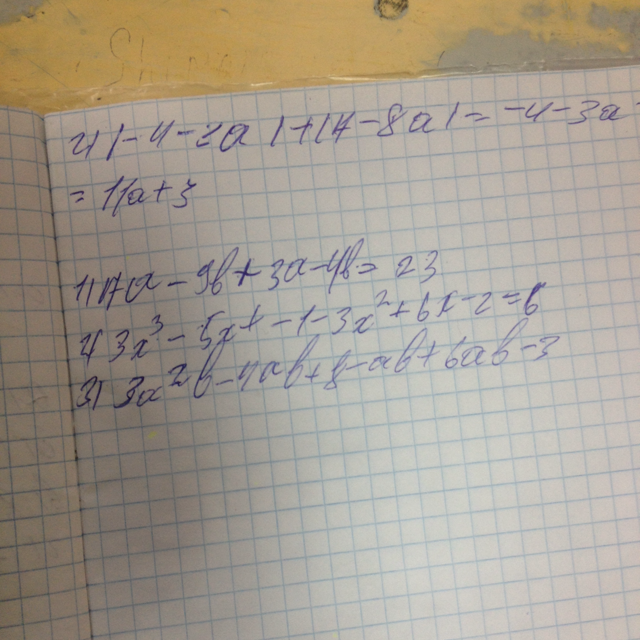 4) |-4-2a|+(7-8a)=-4-3a
=11a+3
1) 17a-9b+3a-4b=23
2) 3x³-5x+-1-3x²+6x-2=6
3) 3a²b-4ab+8-ab+6ab-3